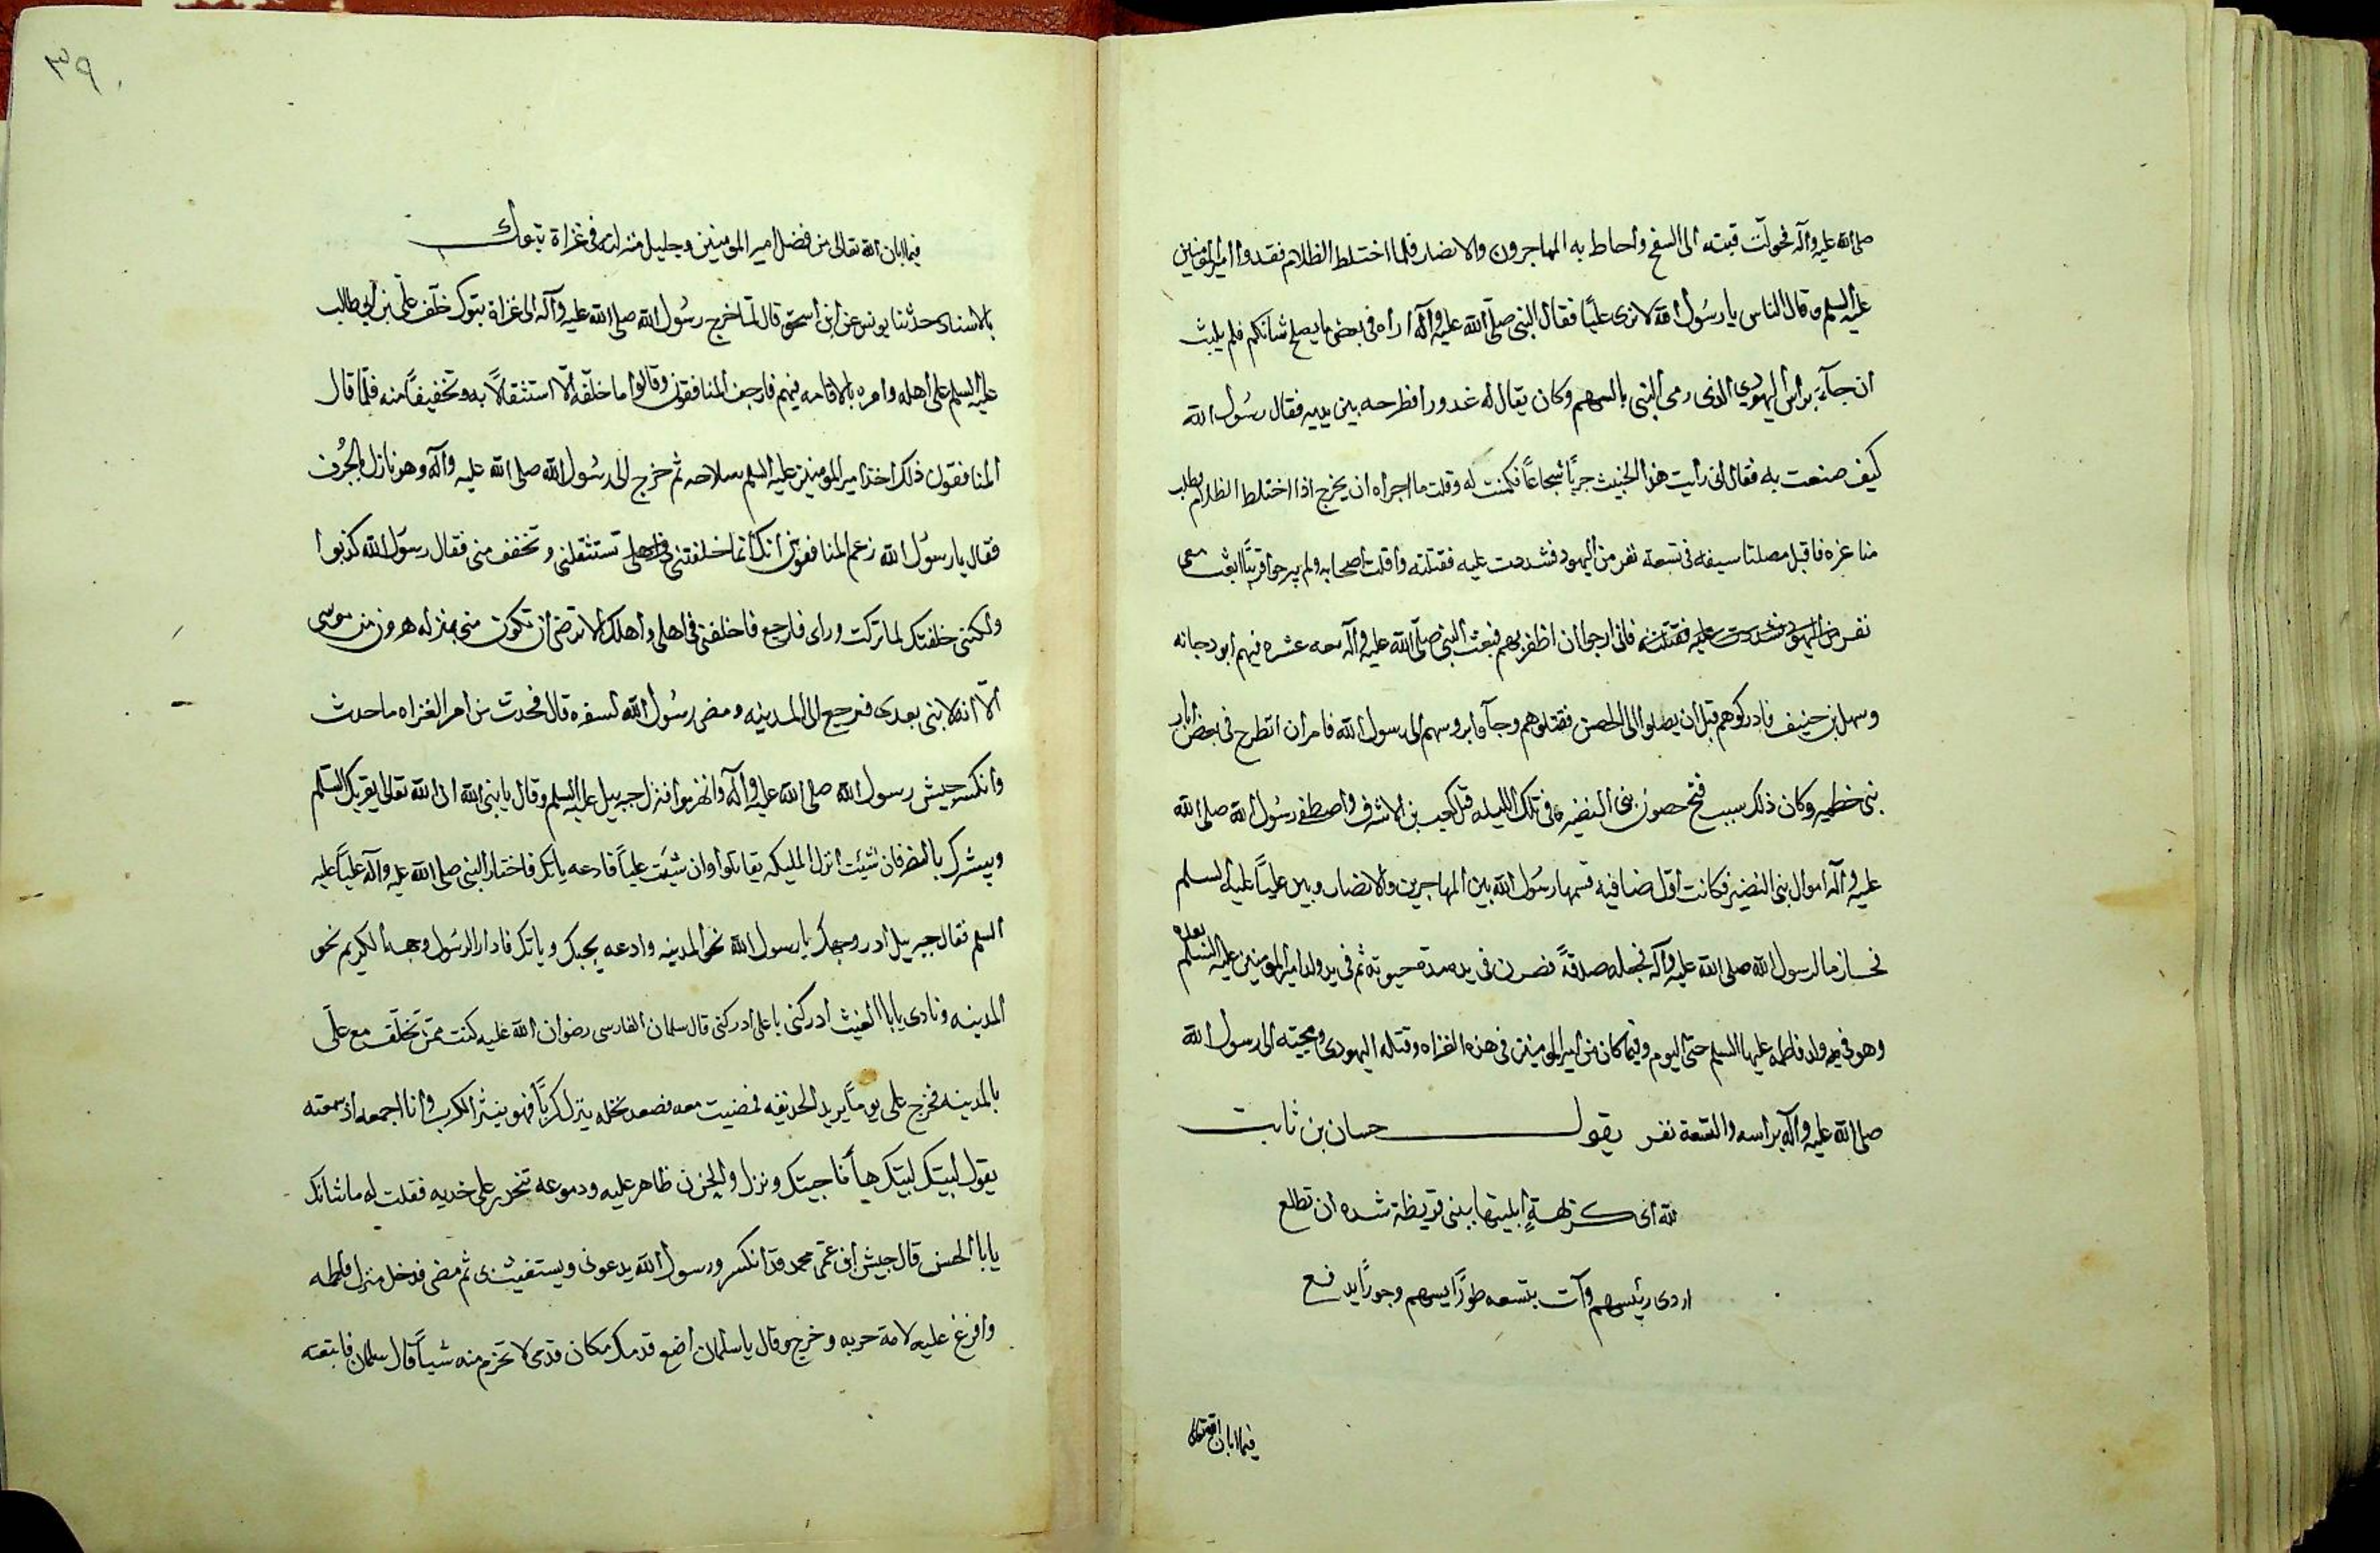 صلى الله عليه وآله فحولت قبته الى السفح واحاط به المهاجرون والانصار فلما اختلط الظلام فقدوا امير المومنين
عليه السلم وقال الناس يا رسول الله لا نرى عليًا فقال النبى صلى الله عليه وآله اراه فى بعض ما يصلح شانكم فلم يلبث
ان جآء برأس اليهودى الذى رمى النبى بالسهم وكان يقال له غدورا فطرحه بين يديه فقال رسول الله
كيف صنعت به فقال انى رايت هذا الخبيث جريًا شجاعًا فكمنت له وقلت ما اجراه ان يخرج اذا اختلط الظلام يطلب
منا غره فاقبل مصلتا سيفه فى تسعة نفر من اليهود فشددت عليه فقتلته وافلت اصحابه ولم يبرحوا قريبًا ابعث معى
نفر من اليهود فشددت عليه فقتلته فانى ارجوا ان اظفر بهم فبعث النبى صلى الله عليه وآله معه عشره فيهم ابو دجانه
وسهل بن حنيف فادركوهم قبل ان يصلوا الى الحصن فقتلوهم وجآوا بروسهم الى رسول الله فامر ان تطرح فى بعض ابار
بنى خطمه وكان ذلك سبب فتح حصون بنى النضير وفى تلك الليله قتل كعب بن الاشرف واصطفى رسول الله صلى الله
عليه وآله اموال بنى النضير فكانت اول صافيه قسمها رسول الله بين المهاجرين والانصار وبين عليًا عليه السلم
فحاز ما لرسول الله صلى الله عليه وآله فجعله صدقةً فصرن فى يده مدة حيوته ثم فى يد ولد امير المومنين عليه السلم بعده
وهو فى يد ولد فاطمه عليها السلم حتى اليوم وفيما كان من امير المومنين فى هذه الغزاه وقتله اليهودى ومجيئه الى رسول الله
صلى الله عليه وآله براسه والتسعة نفر يقول حسان بن ثابت
لله اى كريهةٍ ابليتها ببنى قريظة شده ان تطلع
اردى رئيسهم وآت بتسعه طورًا يسهم وجورًا يدفع
فيما ابان الله تعالى
٣٩٠
فيما ابان الله تعالى من فضل امير المومنين وجليل منزلته فى غزاة تبوك
بالاسناد حدثنا يونس عن ابن اسحق قال لما خرج رسول الله صلى الله عليه وآله الى غزاة تبوك خلف على بن ابى طالب
عليه السلم على اهله وامره بالاقامه فيهم فارجف المنافقون وقالوا ما خلفه الّا استثقالاً به وتخفيفًا منه فلمّا قال
المنافقون ذلك اخذ امير المومنين عليه السلم سلاحه ثم خرج الى رسول الله صلى الله عليه وآله وهو نازل بالجُرف
فقال يا رسول الله زعم المنافقون انك انما خلفتنى فى اهلى تستثقلنى وتخفف منى فقال رسول الله كذبوا
ولكنى خلفتك لما تركت وراى فارجع فاخلفنى فى اهلى واهلك الا ترضى ان تكون منى بمنزله هرون من موسى
الّا انه لا نبى بعدى فرجع الى المدينه ومضى رسول الله لسفره قال فحدث من امر الغزاه ما حدث
وانكسر جيش رسول الله صلى الله عليه وآله وانهزموا فنزل جبرييل عليه السلم وقال يا نبى الله ان الله تعالى يقريك السلم
ويبشرك بالنصر فان شئت انزل المليكه يقاتلوا وان شيت عليًا فادعه ياتك فاختار النبى صلى الله عليه وآله عليًا عليه
السلم فقال جبرييل ادر وجهك يا رسول الله نحو المدينه وادعه يجبك وياتك فادار الرسول وجهه الكريم نحو
المدينه ونادى يا ابا الغيث ادركنى يا على ادركنى قال سلمان الفارسى رضوان الله عليه كنت ممّن تخلّف مع علّى
بالمدينه فخرج على يومًا يريد الحديقه فمضيت معه فصعد نخله ينزل كربًا فهو ينثر الكرب وانا اجمعه اذ سمعته
يقول لبيّك لبيّك هيأ انا جيتك ونزل والحزن ظاهر عليه ودموعه تنحدر على خديه فقلت له ما شانك
يا ابا الحسن قال جيش ابن عمّى محمد قد انكسر ورسول الله يدعونى ويستغيث بى ثم مضى فدخل منزل فاطمه
وافرغ عليه لامة حربه وخرج وقال يا سلمان اضع قدمك مكان قدمى لا تخرم منه شيأ قال سلمان فاتبعته